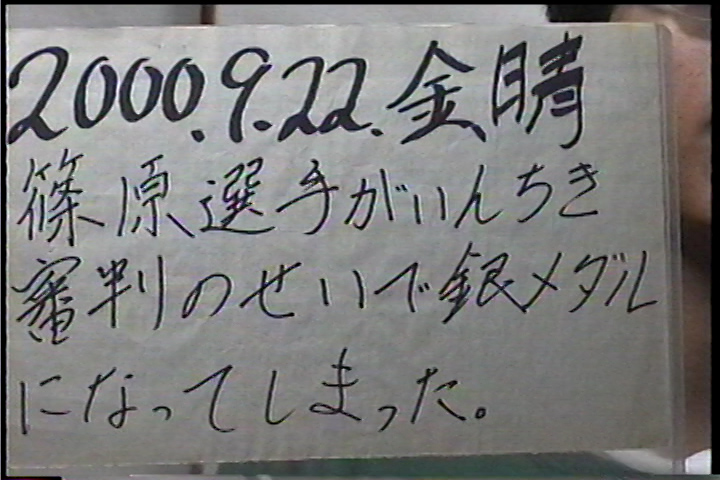 2000.9.22.金晴
篠原選手がいんちき
審判のせいで銀メダル
になってしまった。